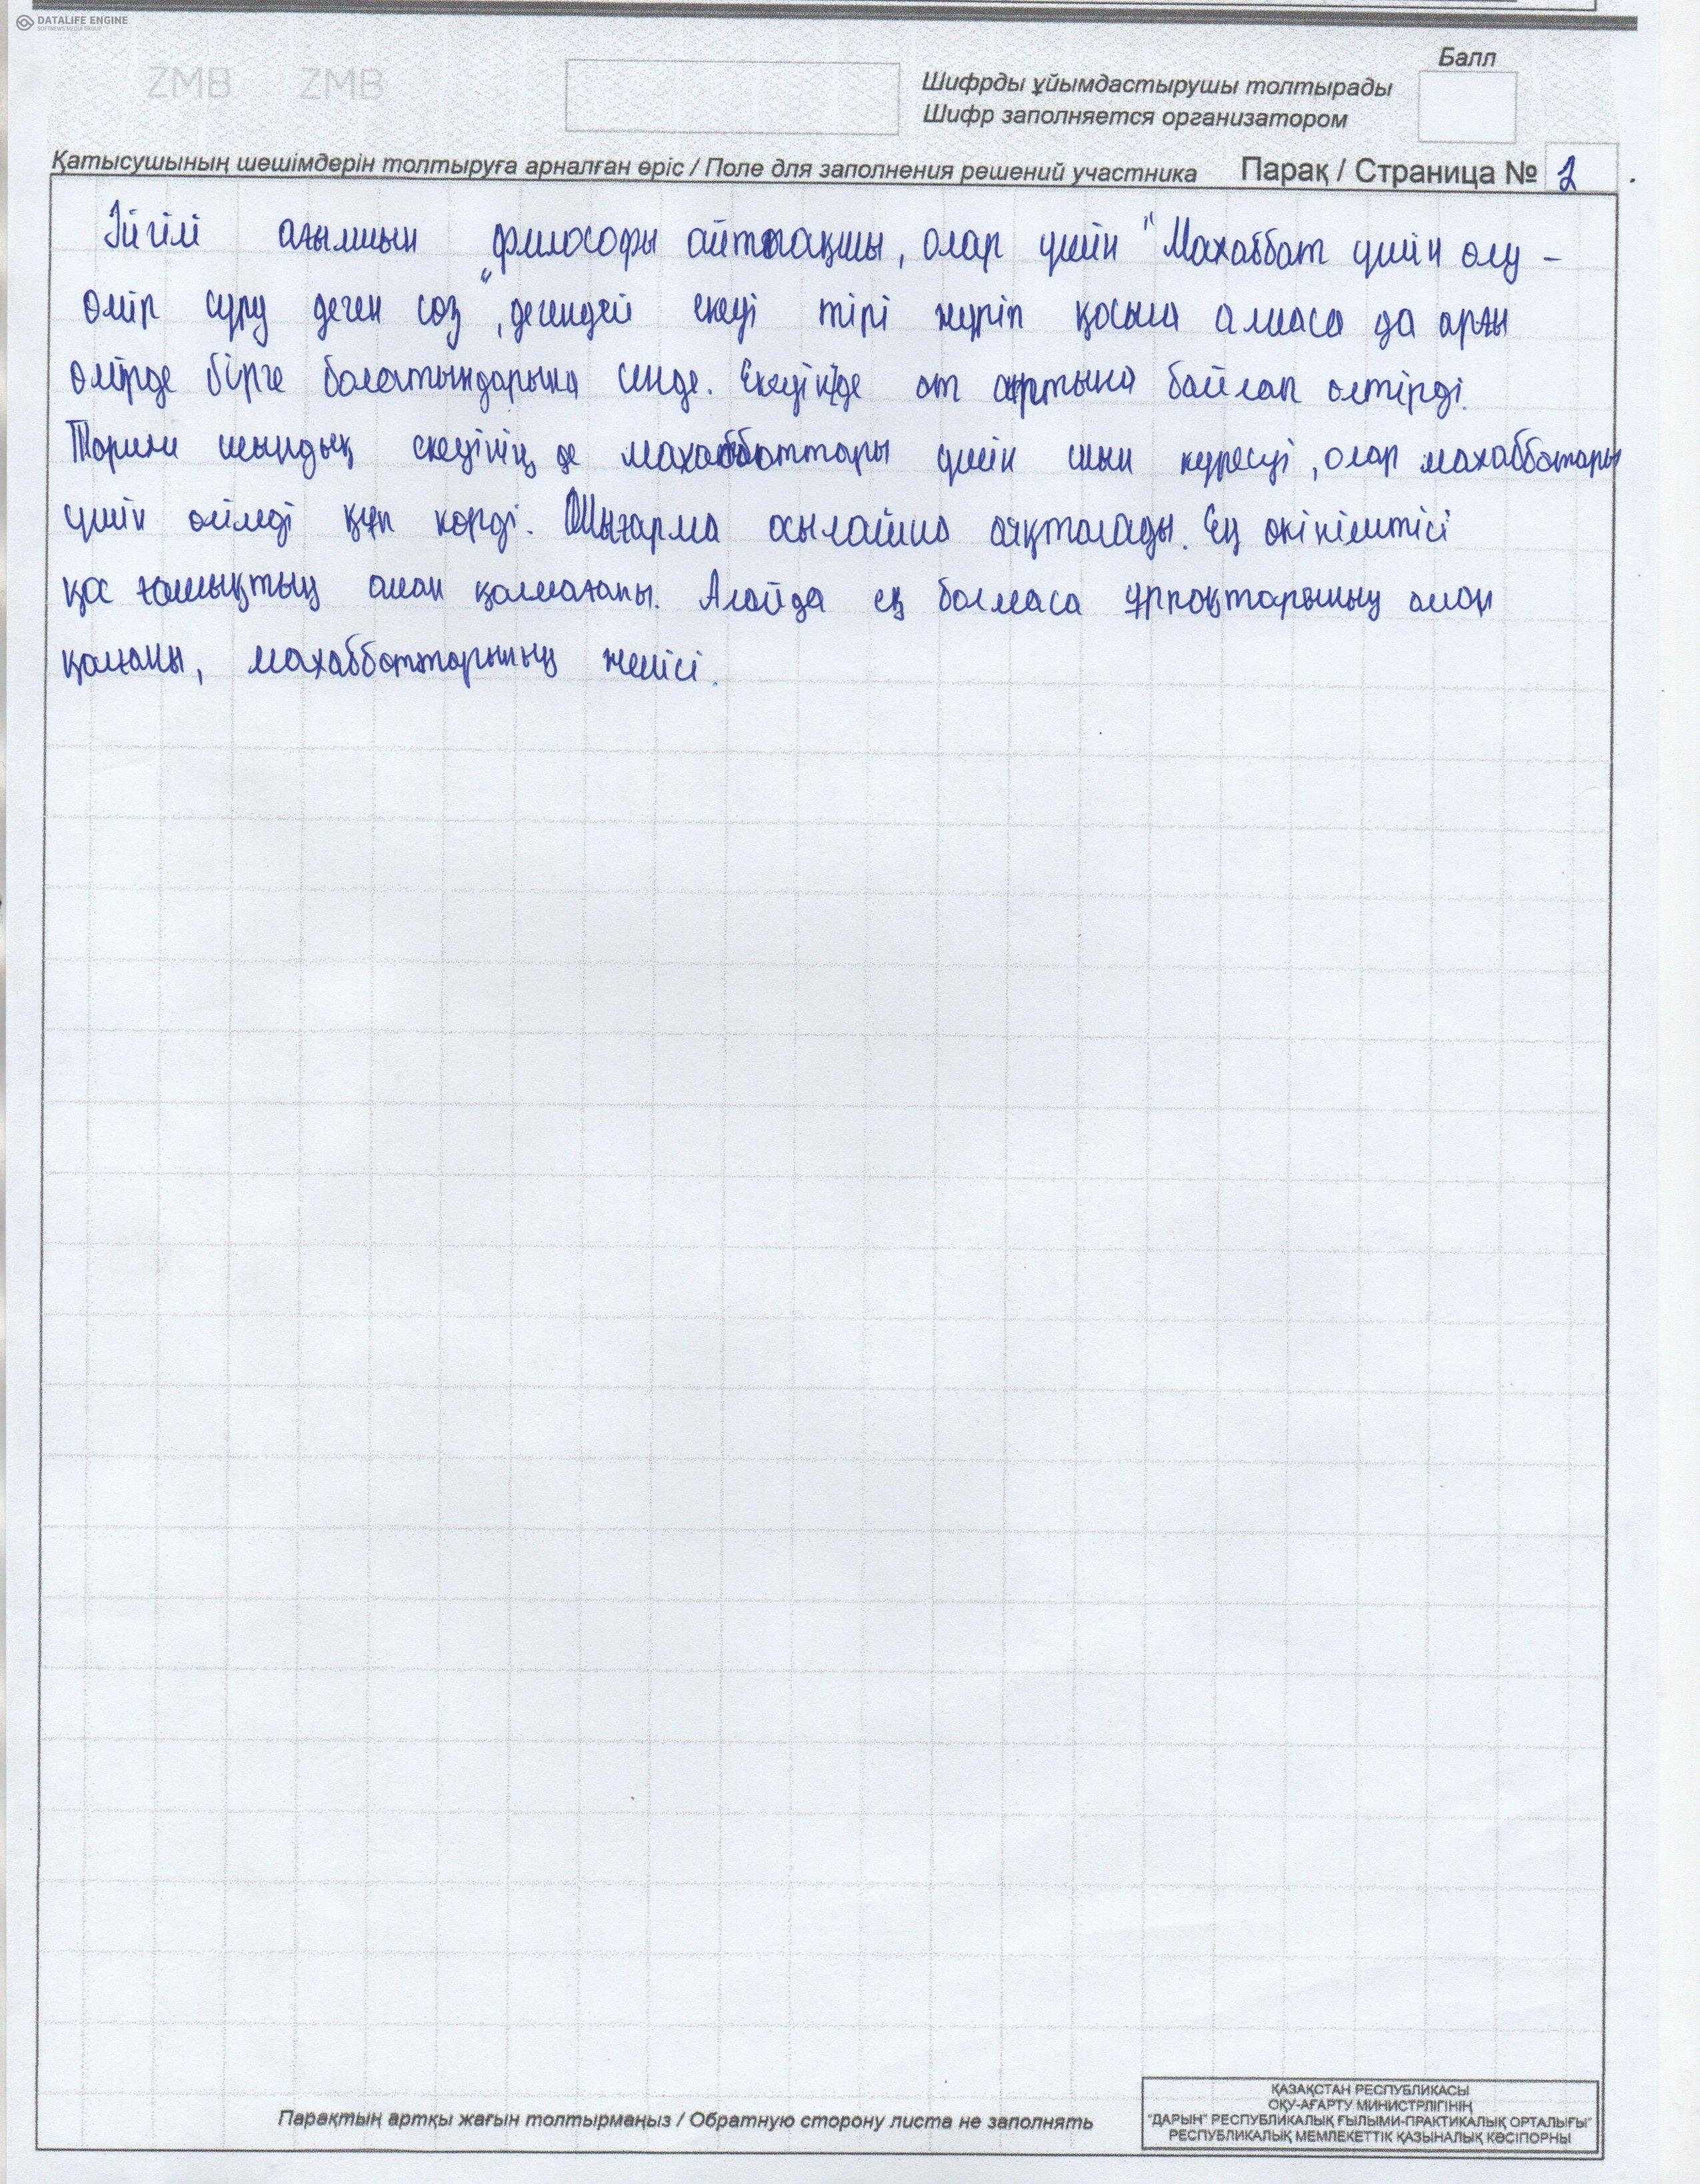 DATALIFE ENGINE
SOFTNEWS MEDIA GROUP
ZMB ZMB
Балл
Шифрды ұйымдастырушы толтырады
Шифр заполняется организатором
Қатысушының шешімдерін толтыруға арналған өріс / Поле для заполнения решений участника Парақ / Страница № 2
Әйгілі ағылшын философы айтпақшы, олар үшін "Махаббат үшін өлу –
өмір сүру деген сөз", дегендей екеуі тірі жүріп қосыла алмаса да арғы
өмірде бірге болатындарына сенді. Екеуін де ат артына байлап өлтірді.
Тарихи шындық екеуінің де махаббаттары үшін шын күресуі, олар махаббатары
үшін өлімді құп көрді. Шығарма осылайша аяқталады. Ең өкініштісі
қос ғашықтың аман қалмағаны. Алайда ең болмаса ұрпақтарының аман
қалғаны, махаббаттарының жеңісі.
Парақтың артқы жағын толтырмаңыз / Обратную сторону листа не заполнять
ҚАЗАҚСТАН РЕСПУБЛИКАСЫ
ОҚУ-АҒАРТУ МИНИСТРЛІГІНІҢ
"ДАРЫН" РЕСПУБЛИКАЛЫҚ ҒЫЛЫМИ-ПРАКТИКАЛЫҚ ОРТАЛЫҒЫ"
РЕСПУБЛИКАЛЫҚ МЕМЛЕКЕТТІК ҚАЗЫНАЛЫҚ КӘСІПОРНЫ